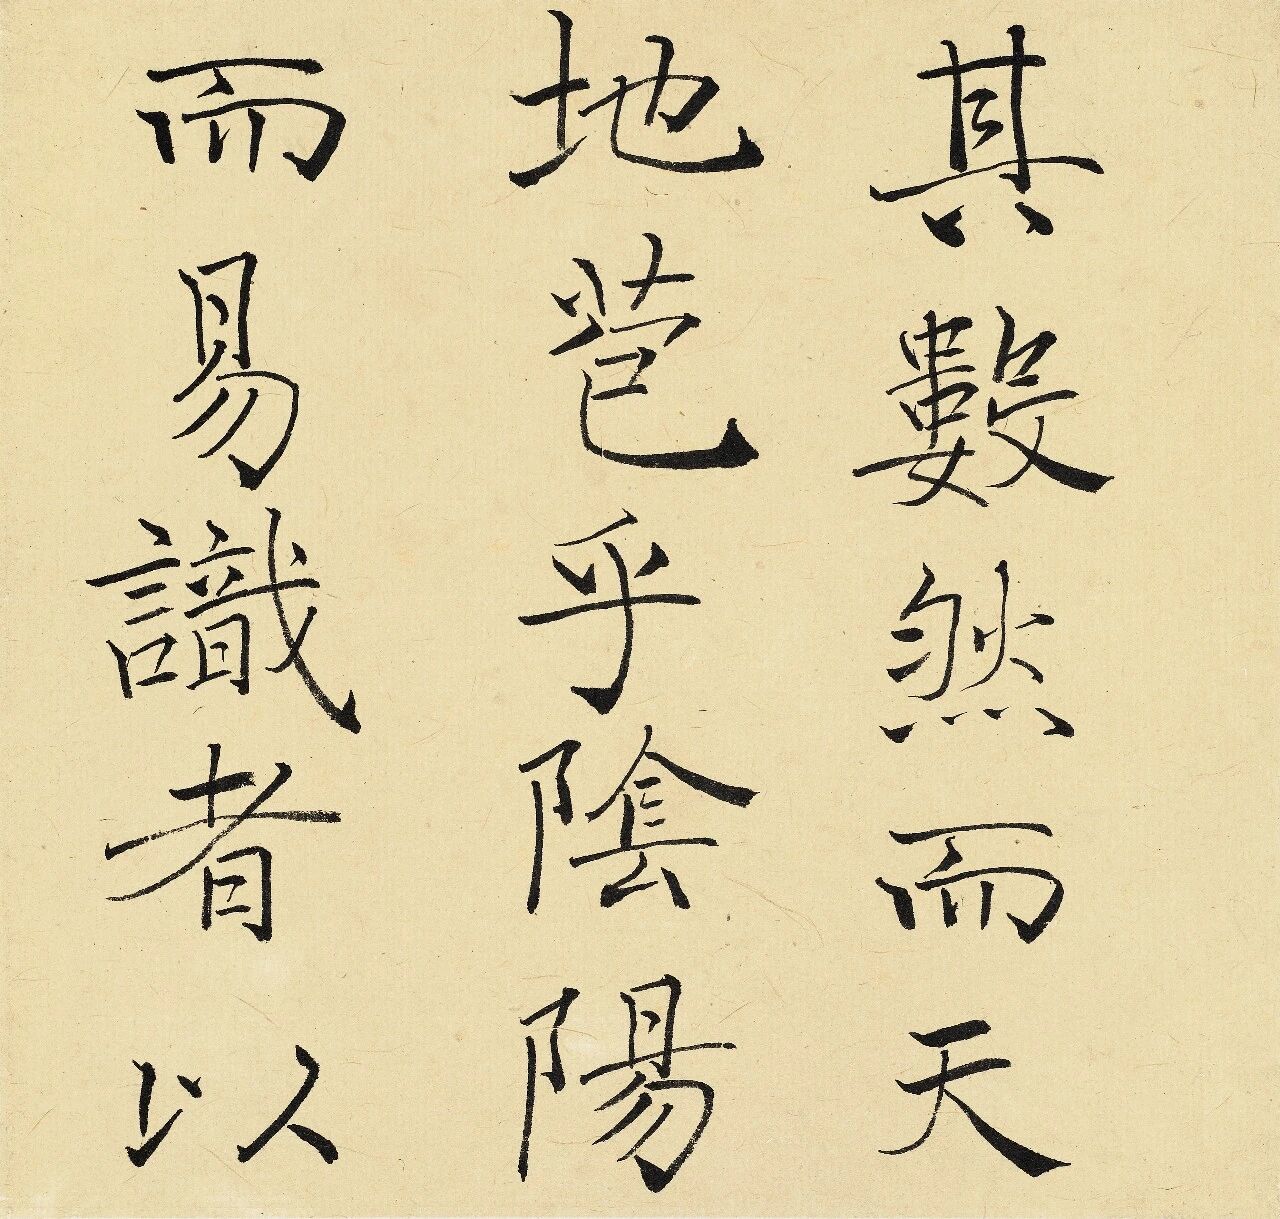 其數然而天
地苞乎陰陽
而易識者以